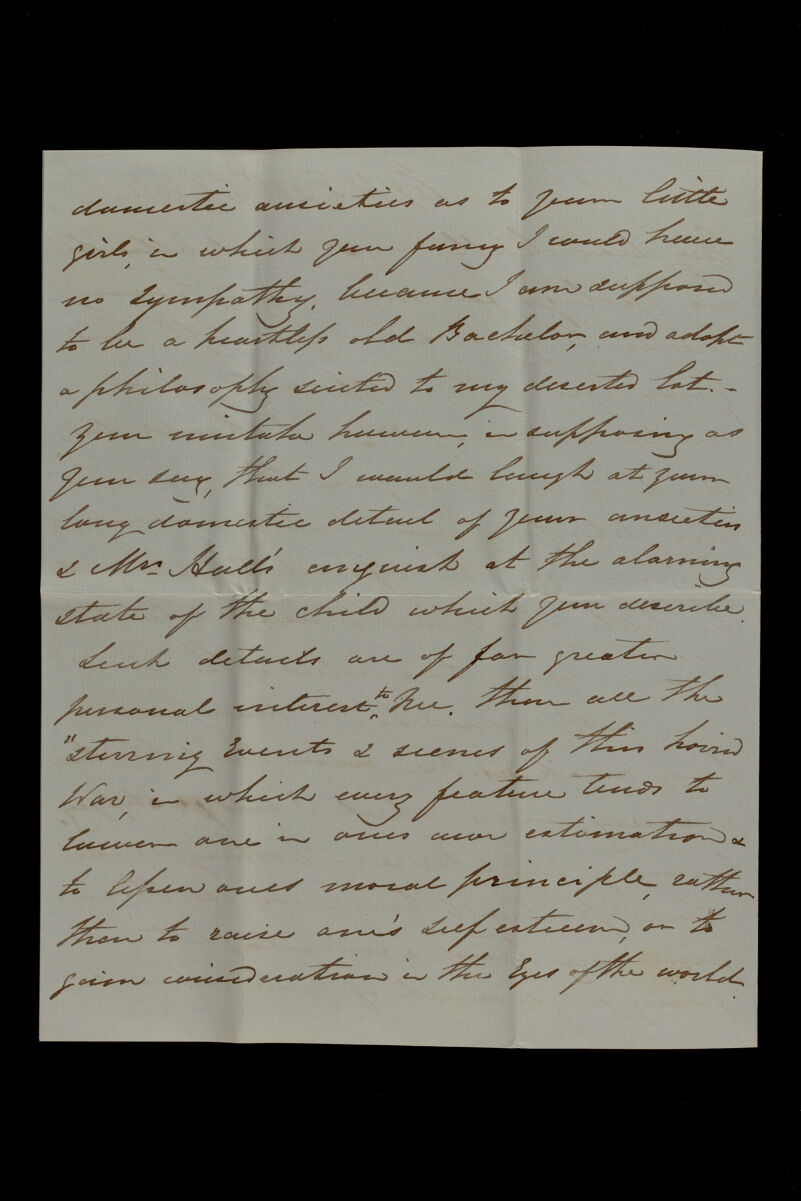 domestic anxieties as to your little
girls, in which you fancy I could have
no sympathy, because I am supposed
to be a heartless old Bachelor, and adopt
a philosophy suited to my deserted lot. -
Your mistake however, in supposing as
you say, that I would laugh at your
long domestic detail of your anxieties
& Mrs Hall's anguish at the alarming
state of the child which you describe.
Such details are of far greater
personal interest to Me. than all the
"stirring Events & scenes of this horrid
War, in which every feature tends to
lower one in ones own estimation &
to lessen ones moral principle, rather
than to raise one's self esteem, or to
gain consideration in the Eyes of the world.